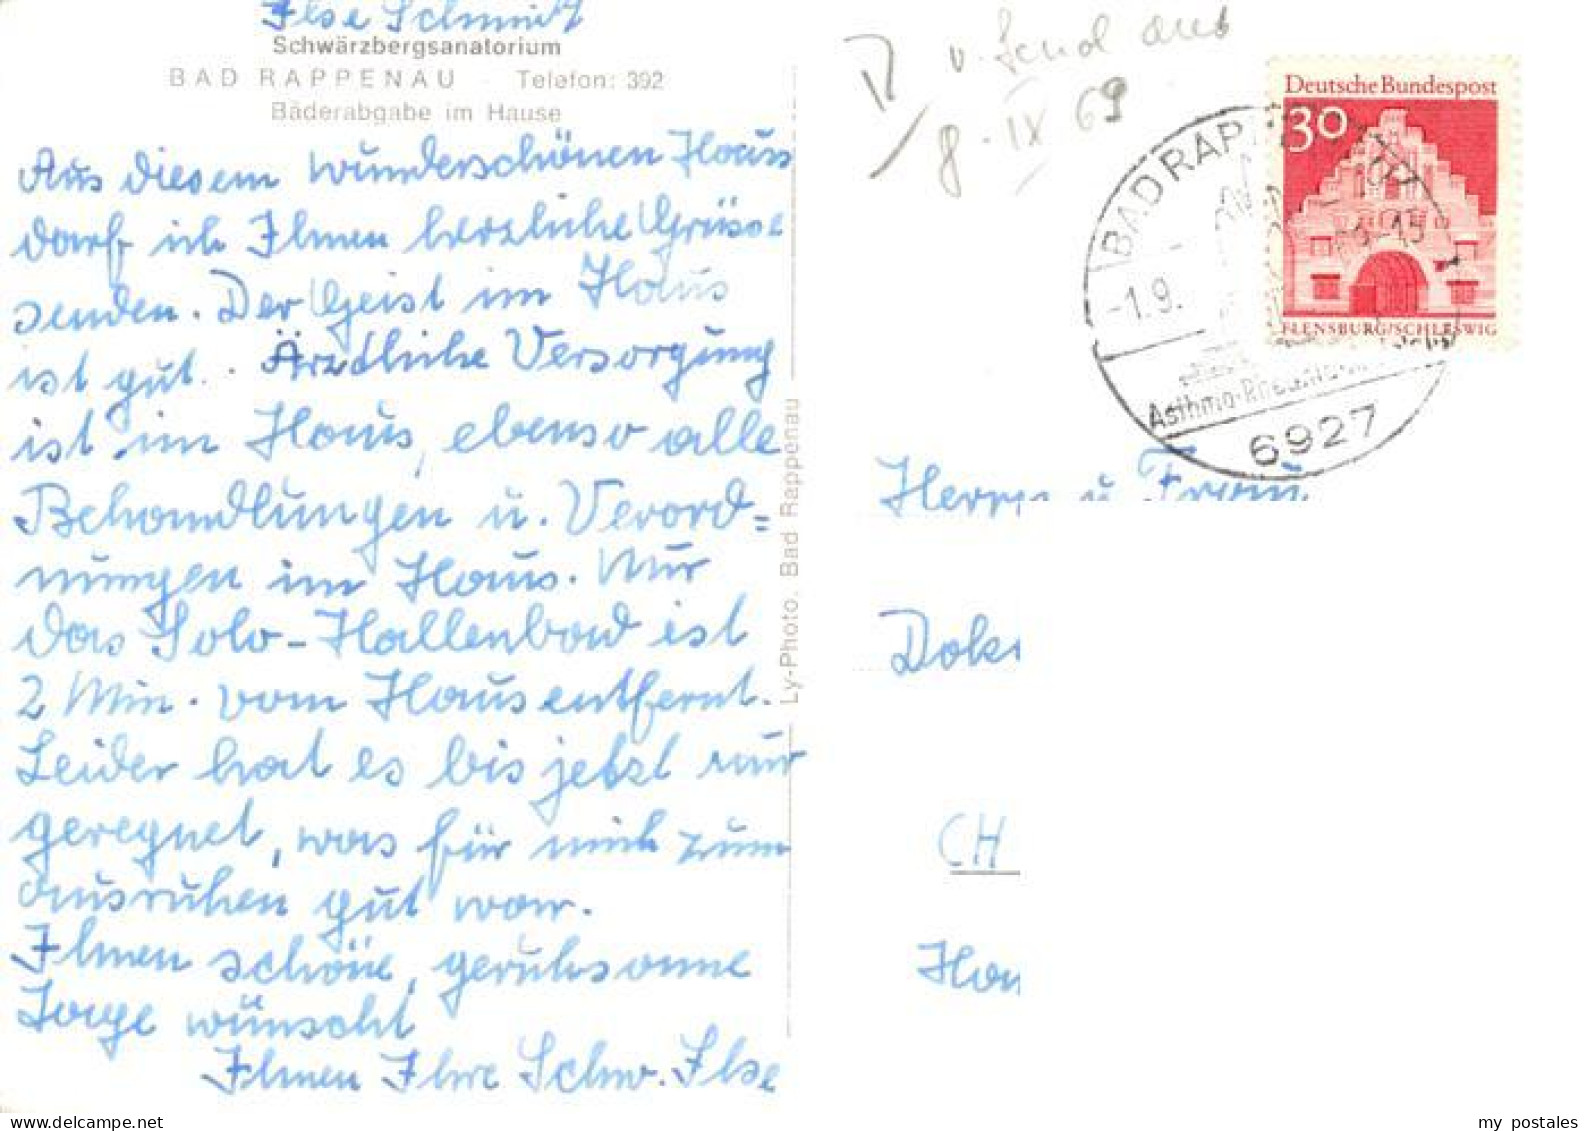 Ilse Schmidt
Schwärzbergsanatorium
BAD RAPPENAU - Telefon: 392
Bäderabgabe im Hause
Aus diesem wunderschönen Haus
darf ich Ihnen herzliche Grüsse
senden. Der Geist im Haus
ist gut. Ärztliche Versorgung
ist im Haus, ebenso alle
Behandlungen u. Verord=
nungen im Haus. Nur
das Solo-Hallenbad ist
2 Min. vom Haus entfernt.
Leider hat es bis jetzt nur
geregnet, was für mich zum
Ausruhen gut war.
Ihnen schöne, geruhsame
Tage wünscht
Ihnen Ihre Schw. Ilse
Ly-Photo, Bad Rappenau
8. IX 69
Deutsche Bundespost
30
FLENSBURG/SCHLESWIG
BAD RAP
-1.9.
Asthma-Rheuma
6927
Herrn u Frau
Dok
CH
my postales